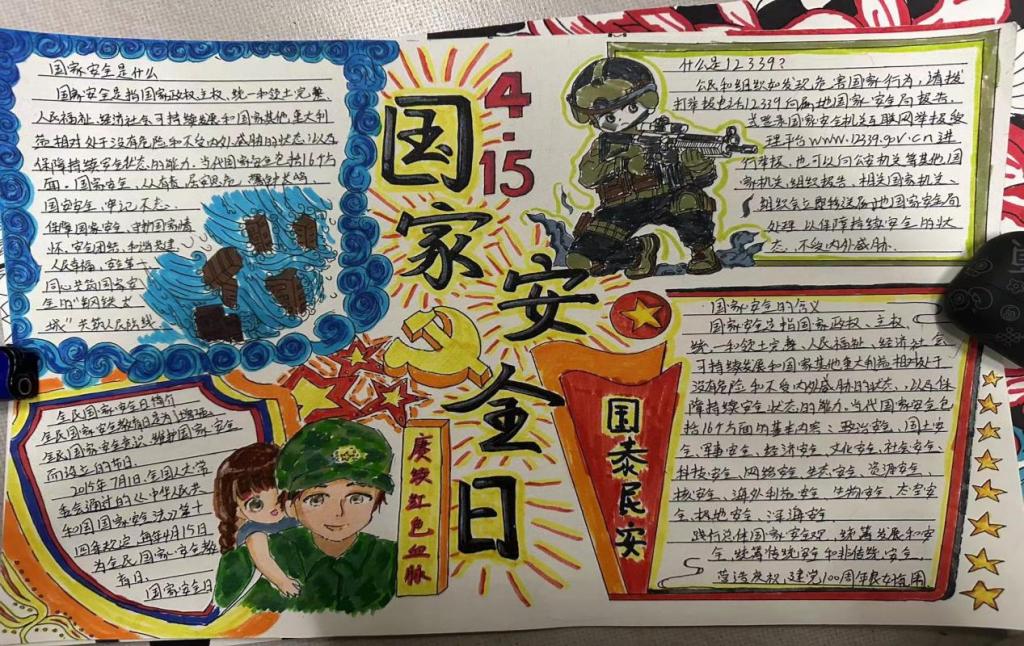 国家安全是什么
国家安全是指国家政权、主权、统一和领土完整
人民福祉、经济社会可持续发展和国家其他重大利
益相对处于没有危险和不受内外威胁的状态,以及
保障持续安全状态的能力。当代国家安全包括16个方
面。国家安全,人人有责,居安思危,警钟长鸣
国家安全,牢记不忘。
保障国家安全
怀,安全团结,和谐共建
人民幸福,安全第一
同心共筑国家安
全的“钢铁长
城”共筑人民防线
4.15
国家安全日
什么是12339?
公民和组织如发现危害国家行为,请拨
打举报电话12339向属地国家安全局报告。
或登录国家安全机关互联网举报受
理平台www.12339.gov.cn进
行举报,也可以向公安机关等其他国
家机关、组织报告,相关国家机关、
组织会立即移送属地国家安全局
处理以保障持续安全的状
态,不受内外威胁。
全民国家安全日简介
全民国家安全教育日是为了增强
全民国家安全意识,维护国家安全
而设立的节日。
2015年7月1日,全国人大常
委会通过的《中华人民共
和国国家安全法》第十
四条规定,每年4月15日
为全民国家安全教
育日。
国家安全日
赓续红色血脉
国泰民安
国家安全的含义
国家安全是指国家政权、主权、
统一和领土完整、人民福祉、经济社会
可持续发展和国家其他重大利益相对处于
没有危险和不受内外威胁的状态,以及保
障持续安全状态的能力。当代国家安全包
括16个方面的基本内容:政治安全、国土安
全、军事安全、经济安全、文化安全、社会安全、
科技安全、网络安全、生态安全、资源安全、
核安全、海外利益安全、生物安全、太空安
全、极地安全、深海安全
践行总体国家安全观,统筹发展和安
全,统筹传统安全和非传统安全。
建党100周年